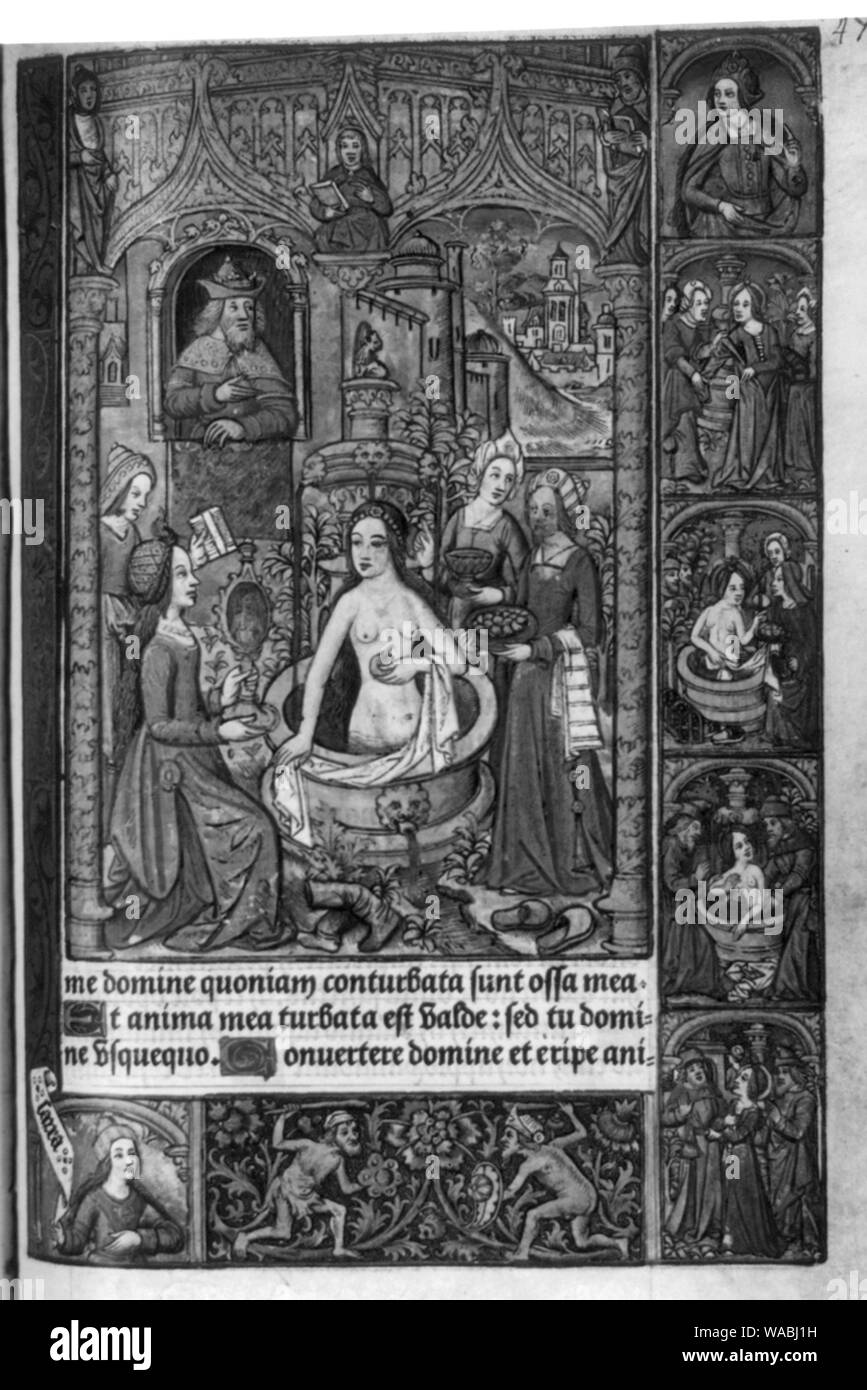 47
me domine quoniam conturbata sunt ossa mea.
Et anima mea turbata est valde: sed tu domi-
ne vsquequo. Conuertere domine et eripe ani-
alamy
Image ID: WABJ1H
www.alamy.com